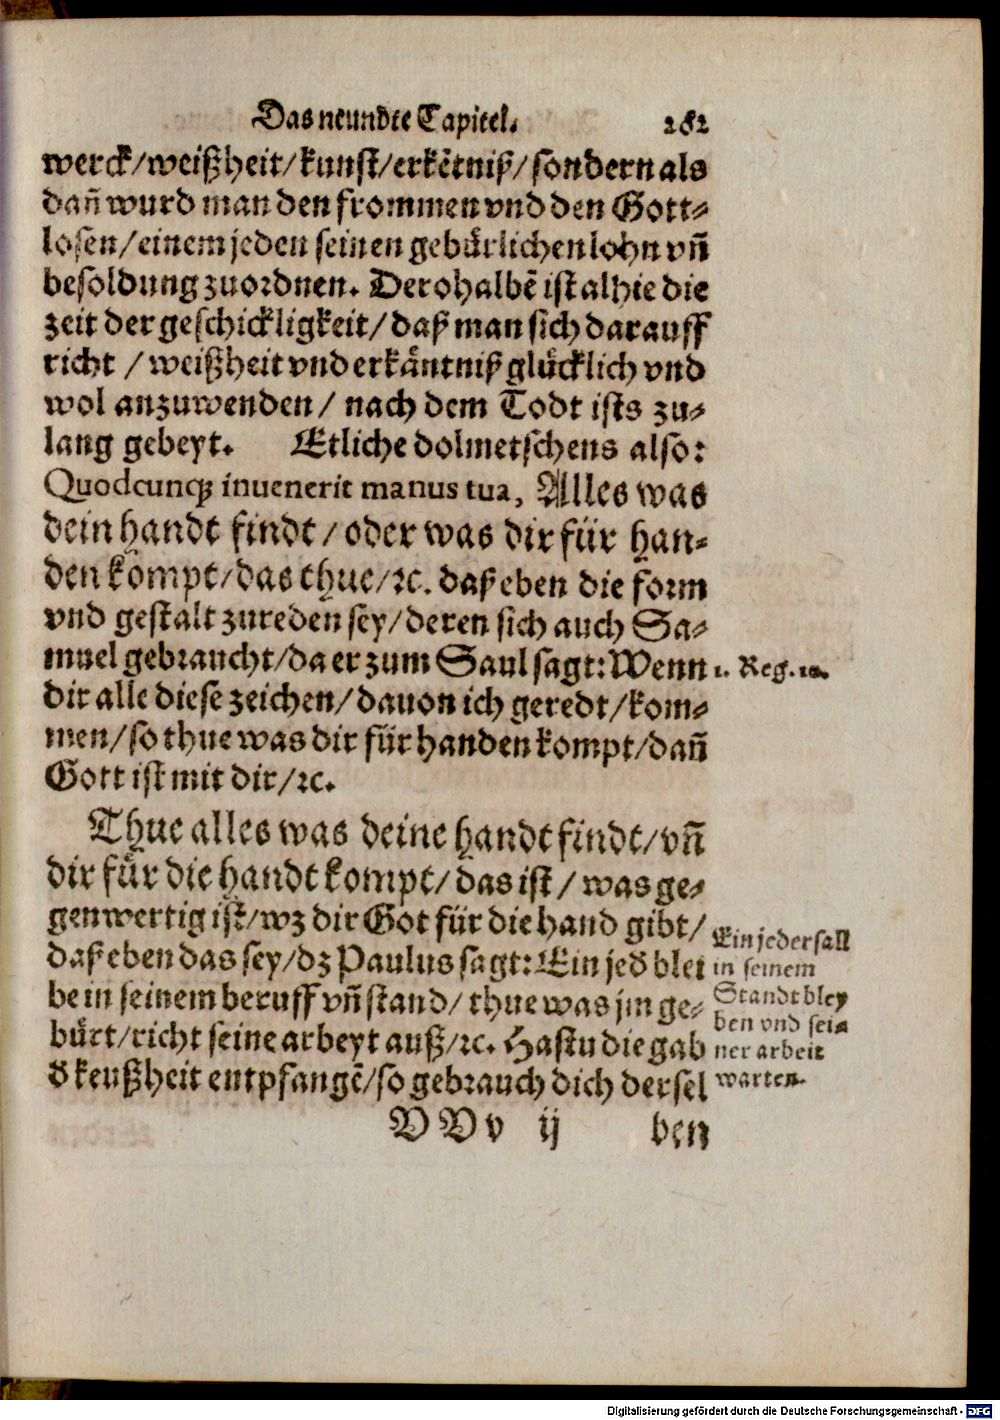 Das neundte Capitel. 262
werck/weißheit/kunst/erkẽtniß/sondern als
dañ wurd man den frommen vnd den Gott-
losen/einem jeden seinen gebürlichen lohn vñ
besoldung zuordnen. Derohalbẽ ist alhie die
zeit der geschickligkeit/daß man sich darauff
richt / weißheit vnd erkäntniß glücklich vnd
wol anzuwenden/ nach dem Todt ists zu-
lang gebeyt. Etliche dolmetschens also:
Quodcunq; inuenerit manus tua, Alles was
dein handt findt / oder was dir für han-
den kompt/das thue/ꝛc. daß eben die form
vnd gestalt zureden sey/deren sich auch Sa-
muel gebraucht/da er zum Saul sagt: Wenn
1. Reg. 10.
dir alle diese zeichen/dauon ich geredt/kom-
men/so thue was dir für handen kompt/dañ
Gott ist mit dir/ꝛc.
Thue alles was deine handt findt/vñ
dir für die handt kompt/das ist / was ge-
genwertig ist/wz dir Got für die hand gibt/
daß eben das sey/dz Paulus sagt: Ein jed̕ blei
be in seinem beruff vñ stand/ thue was jm ge-
bürt/richt seine arbeyt auß/ꝛc. Hastu die gab
d̕ keußheit entpfangẽ/so gebrauch dich dersel
Ein jeder sall
in seinem
Standt bley
ben vnd sei-
ner arbeit
warten.
V V v ij ben
Digitalisierung gefördert durch die Deutsche Forschungsgemeinschaft - DFG